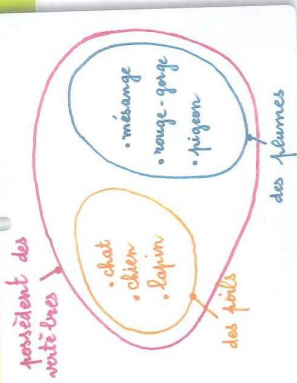 possèdent des
vertèbres
• chat
• chien
• lapin
des poils
• mésange
• rouge-gorge
• pigeon
des plumes